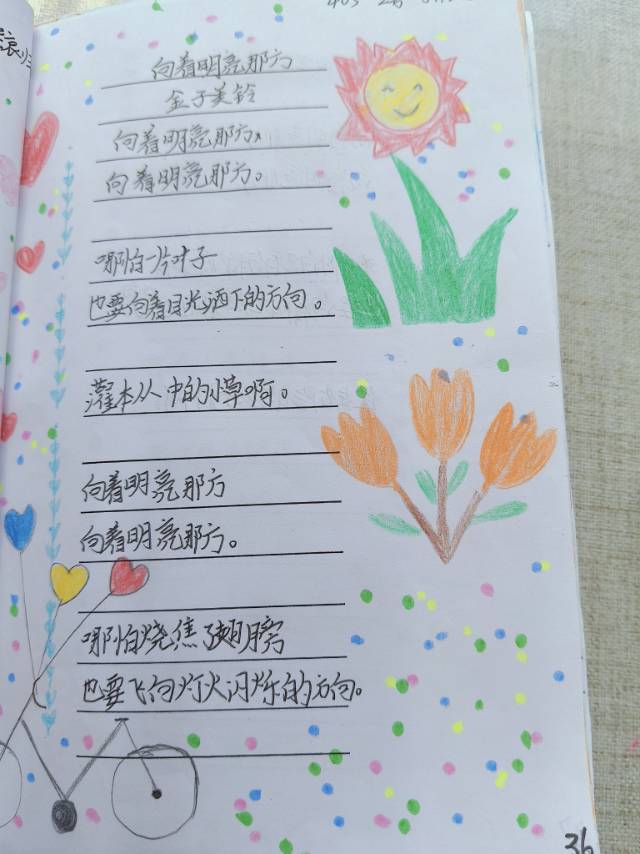 向着明亮那方
金子美铃
向着明亮那方,
向着明亮那方。
哪怕一片叶子
也要向着日光洒下的方向。
灌木从中的小草啊。
向着明亮那方
向着明亮那方。
哪怕烧焦了翅膀
也要飞向灯火闪烁的方向。
36